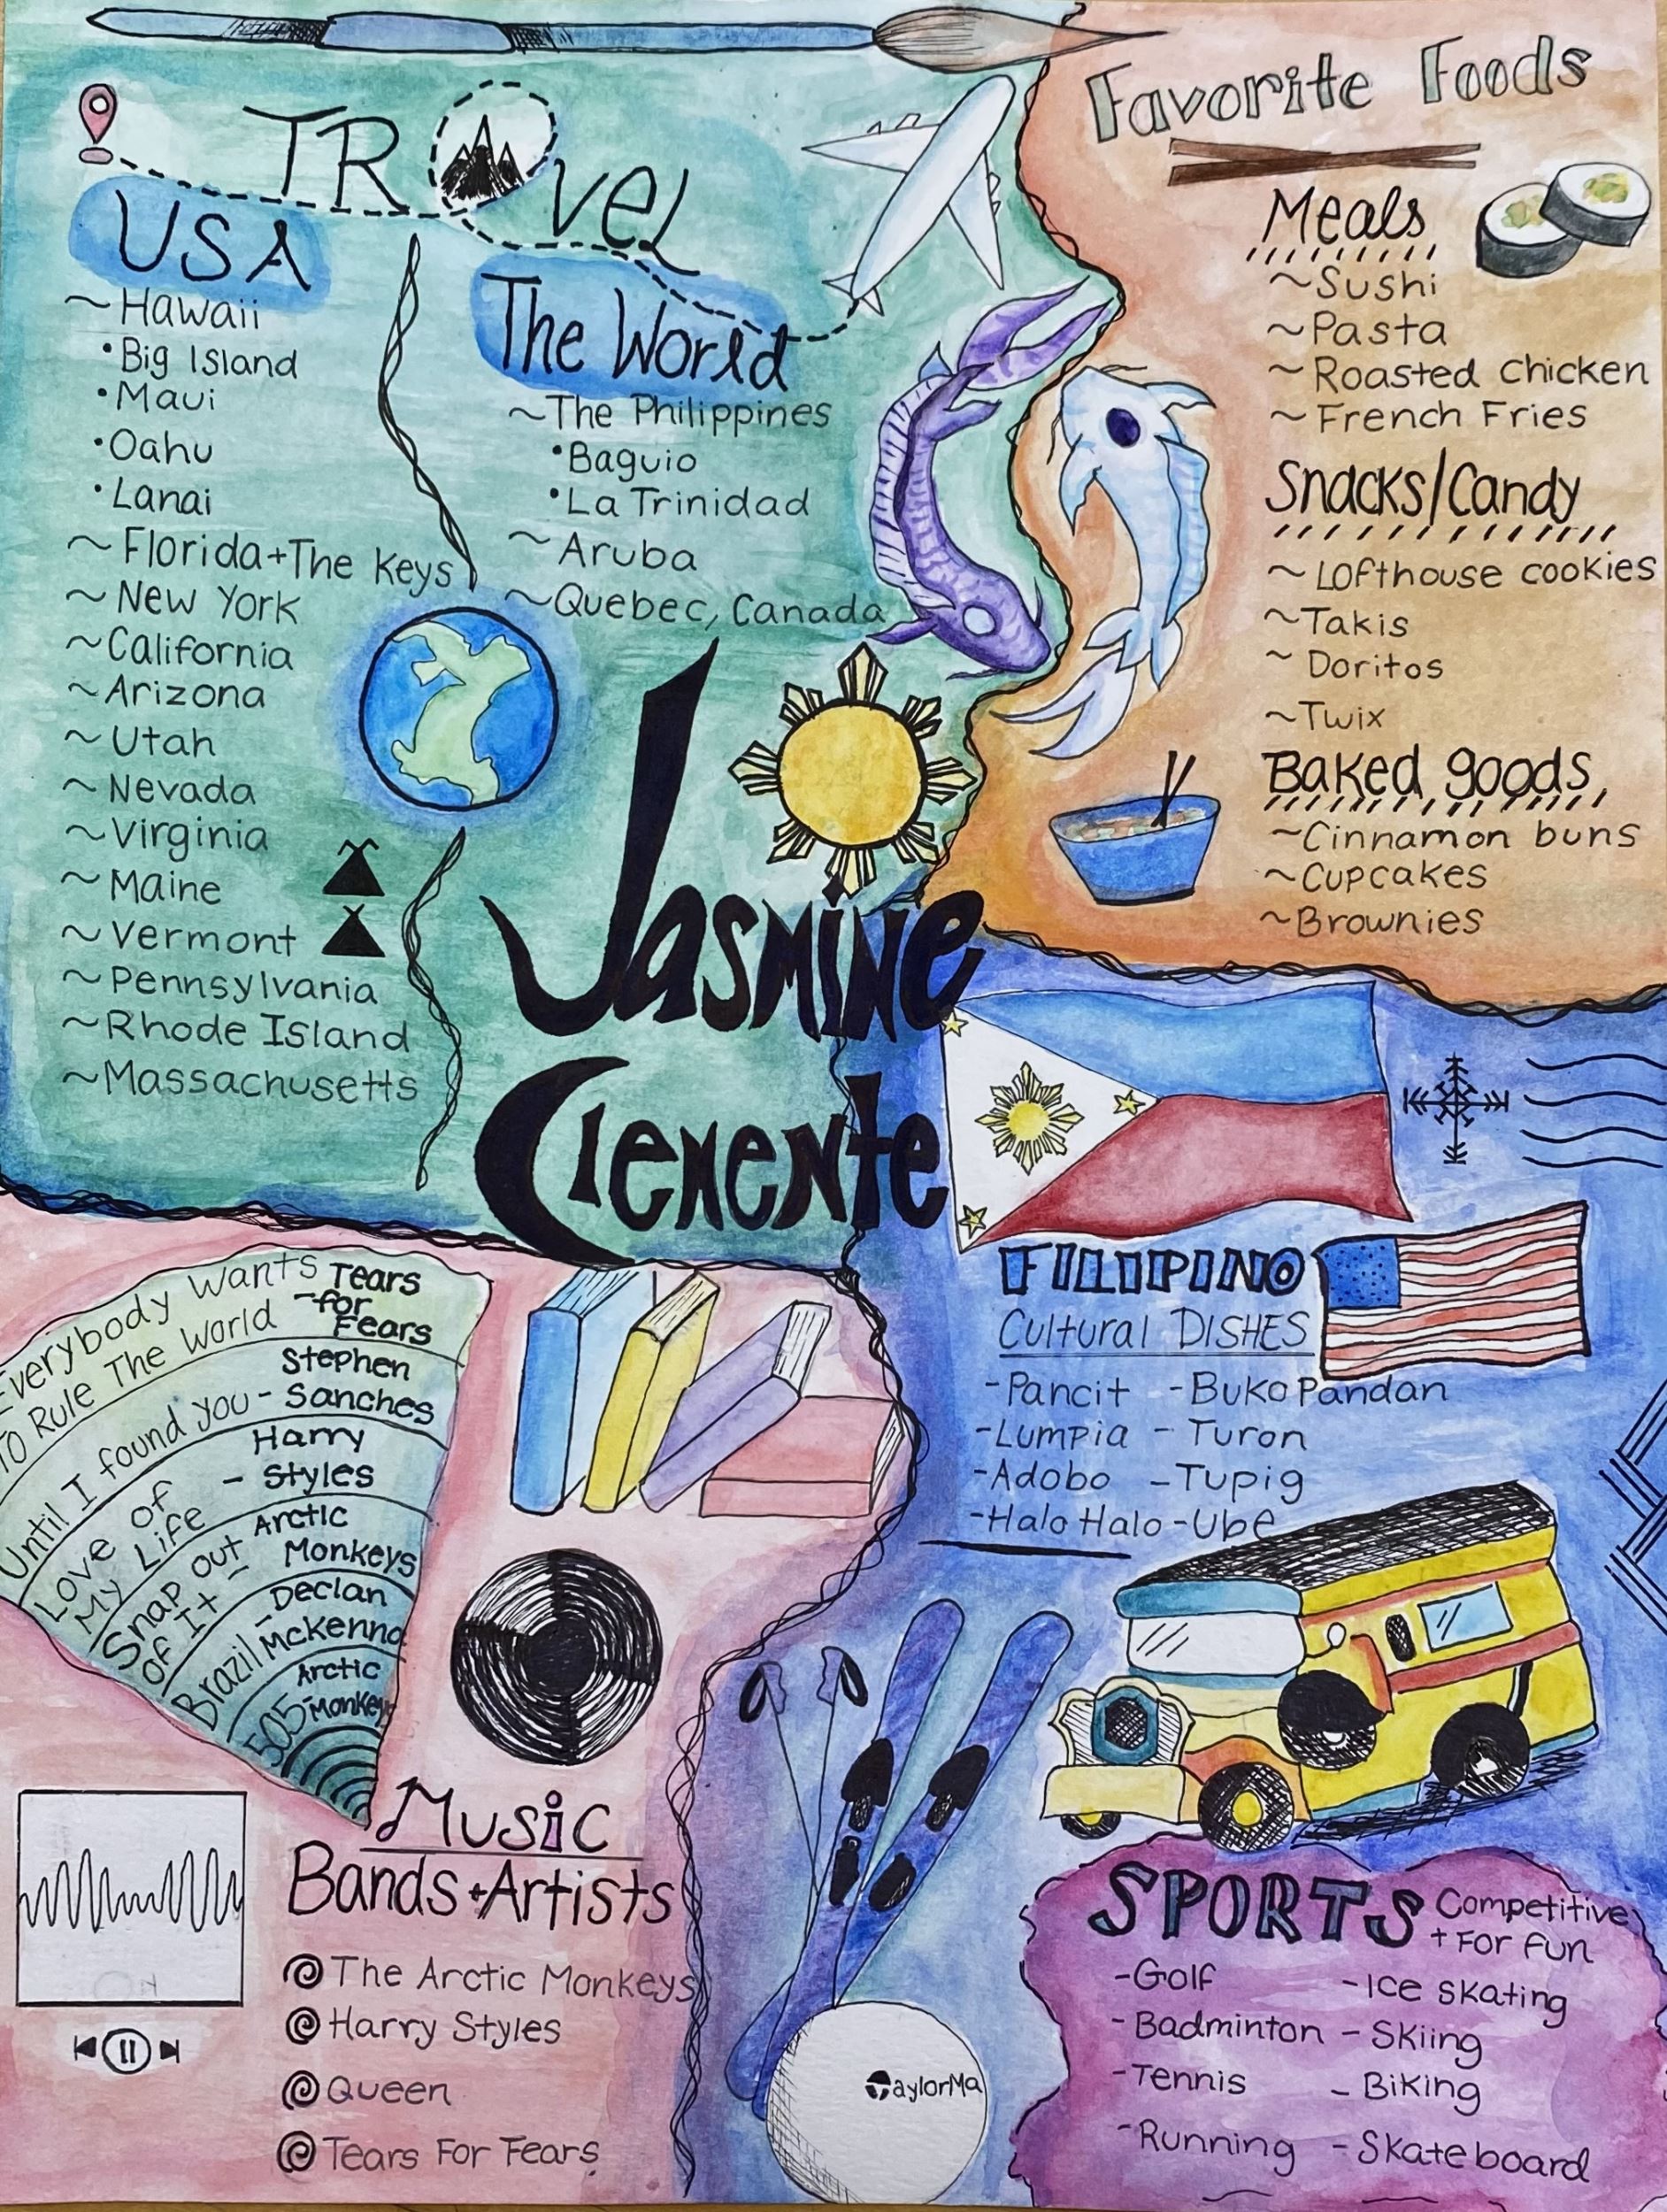 TRAVEL
USA
~ Hawaii
• Big Island
• Maui
• Oahu
• Lanai
~ Florida + The Keys
~ New York
~ California
~ Arizona
~ Utah
~ Nevada
~ Virginia
~ Maine
~ Vermont
~ Pennsylvania
~ Rhode Island
~ Massachusetts
The World
~ The Philippines
• Baguio
• La Trinidad
~ Aruba
~ Quebec, Canada
Favorite Foods
Meals
~ Sushi
~ Pasta
~ Roasted Chicken
~ French Fries
Snacks/Candy
~ Lofthouse cookies
~ Takis
~ Doritos
~ Twix
Baked goods
~ Cinnamon buns
~ Cupcakes
~ Brownies
Jasmine
Clemente
FILIPINO
Cultural DISHES
- Pancit - Buko Pandan
- Lumpia - Turon
- Adobo - Tupig
- Halo Halo - Ube
Everybody Wants Tears
To Rule The World - for
Fears
Until I found you - Stephen
Sanches
Love of
My Life - Harry
Styles
Snap out
Of It - Arctic
Monkeys
Brazil - Declan
McKenna
505 - Arctic
Monkeys
Music
Bands + Artists
The Arctic Monkeys
Harry Styles
Queen
Tears For Fears
TaylorMa
SPORTS Competitive
+ For Fun
- Golf - Ice skating
- Badminton - Skiing
- Tennis - Biking
- Running - Skateboard